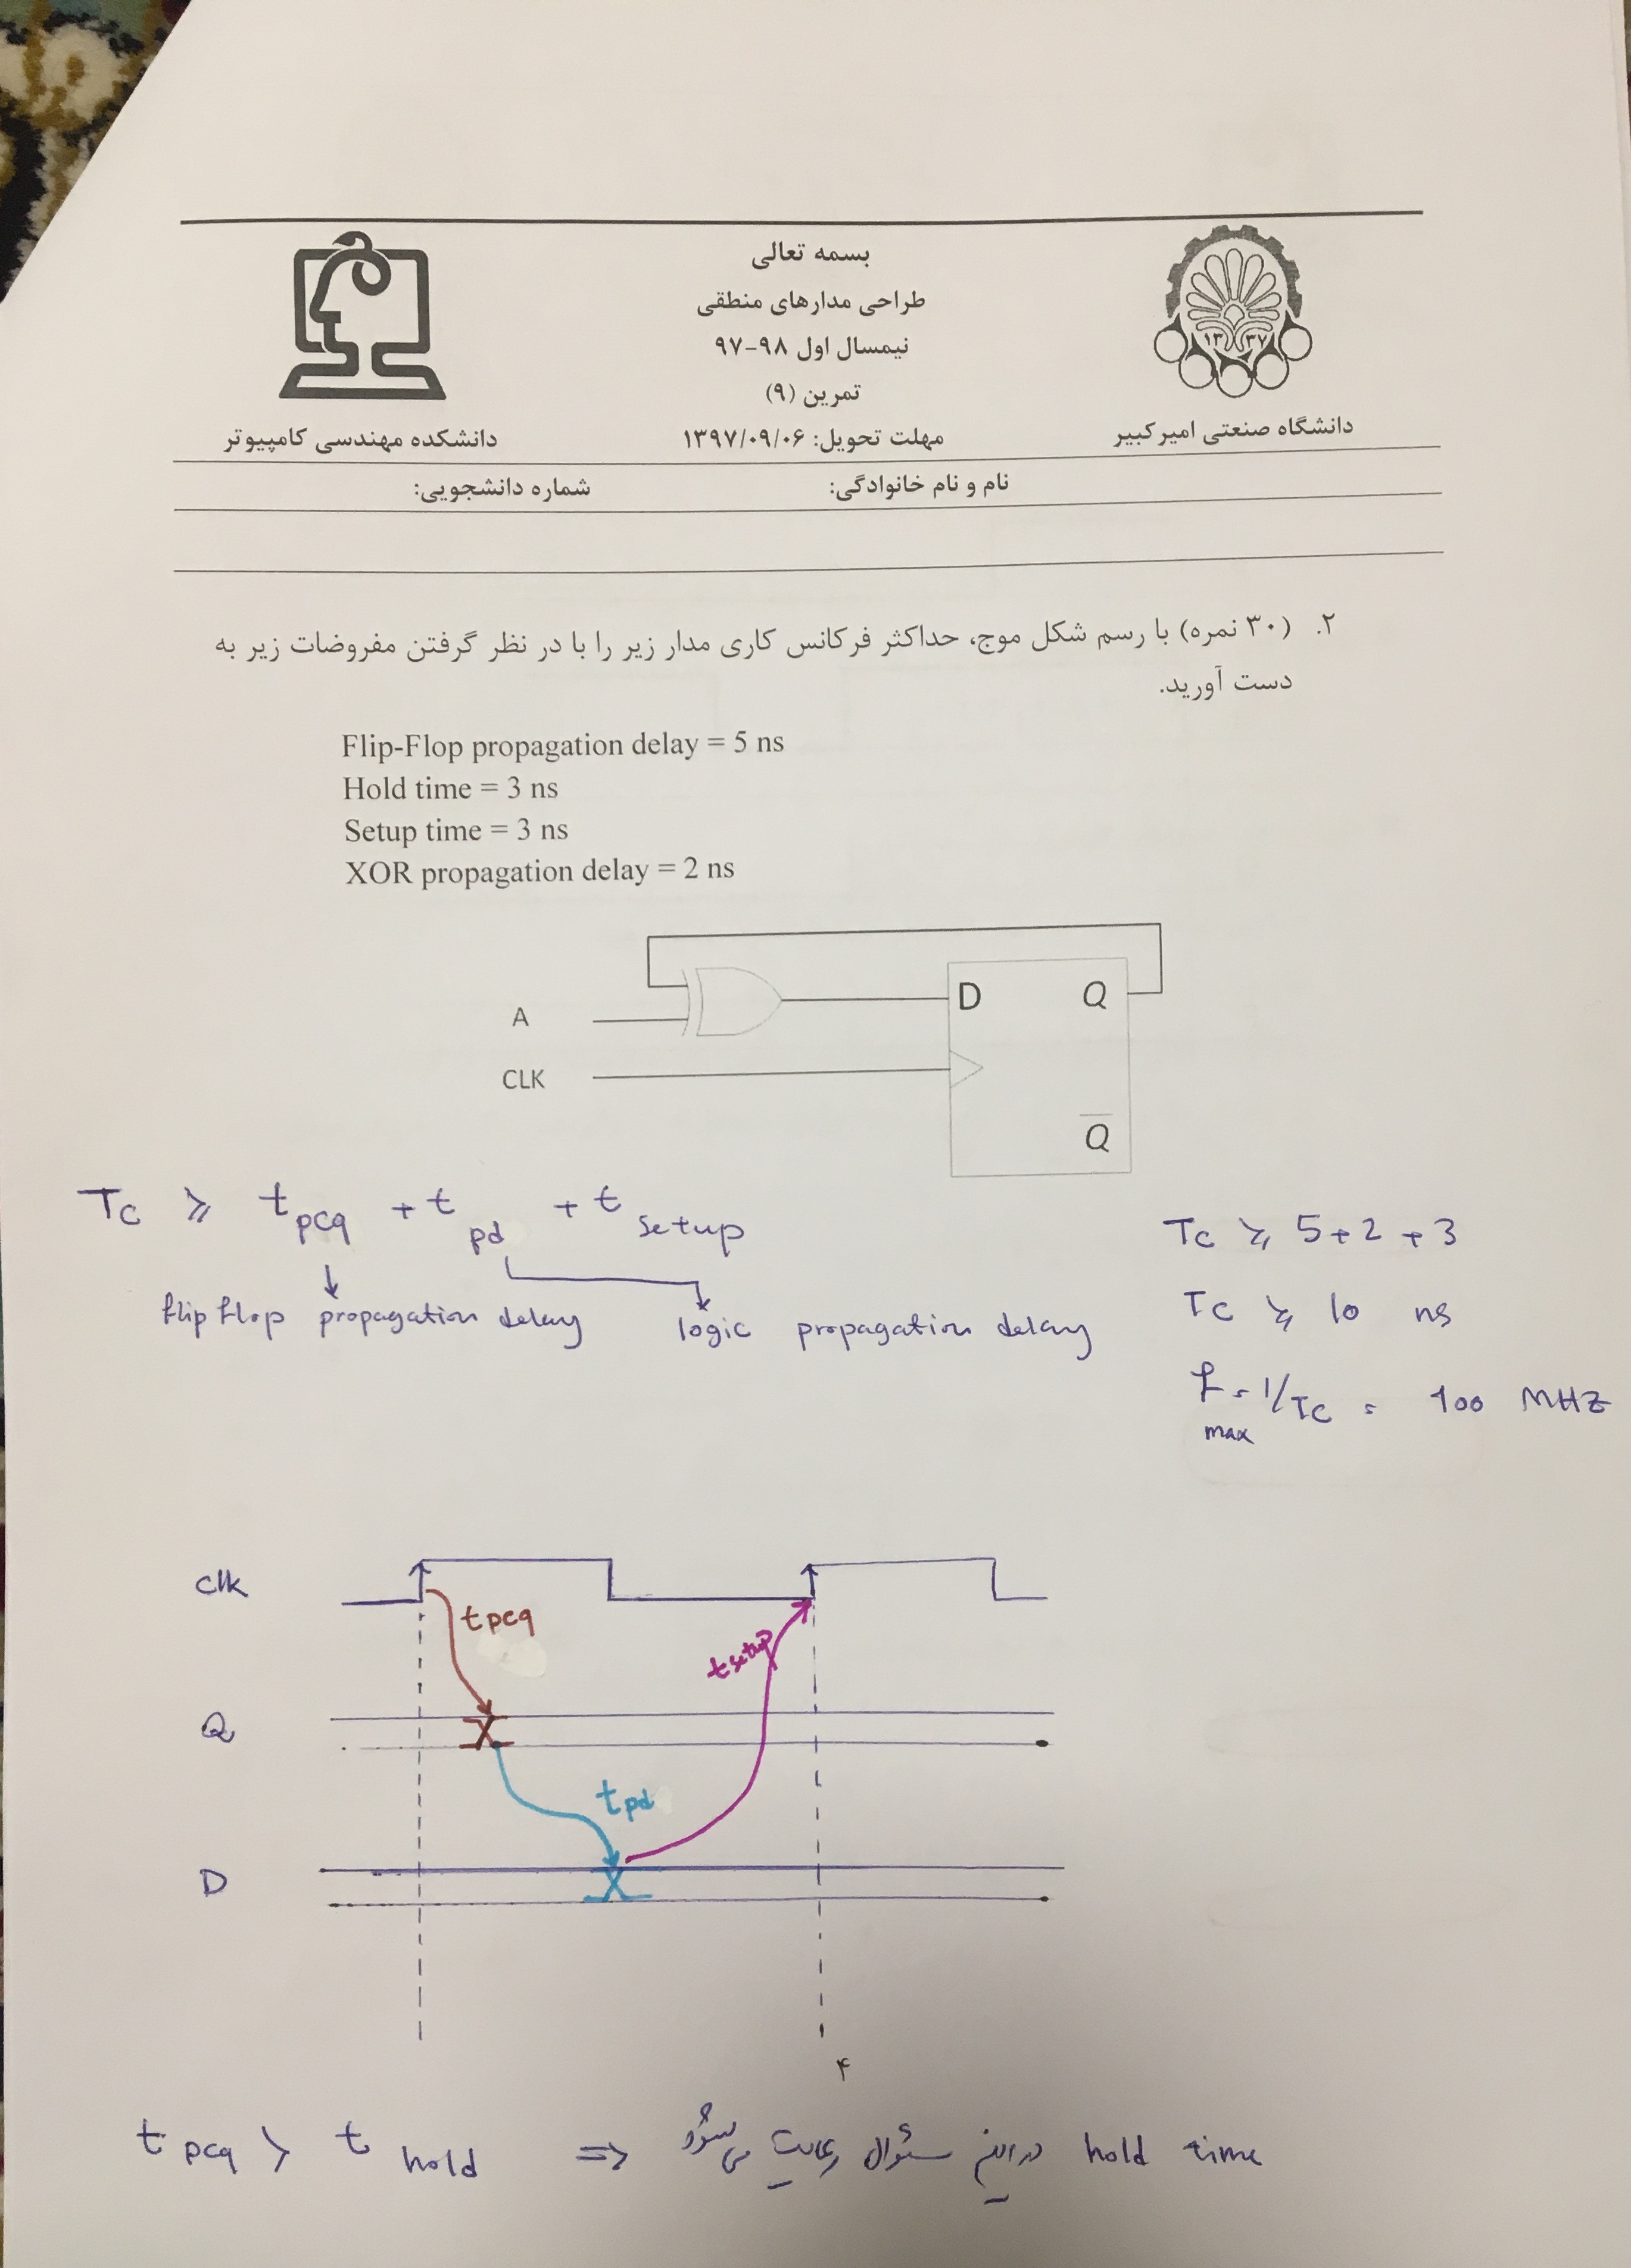 بسمه تعالی
طراحی مدارهای منطقی
نیمسال اول ۹۸-۹۷
تمرین (۹)
مهلت تحویل: ۱۳۹۷/۰۹/۰۶
۱۳ ۳۷
دانشگاه صنعتی امیرکبیر
دانشکده مهندسی کامپیوتر
نام و نام خانوادگی: شماره دانشجویی:
۲. (۳۰ نمره) با رسم شکل موج، حداکثر فرکانس کاری مدار زیر را با در نظر گرفتن مفروضات زیر به
دست آورید.
Flip-Flop propagation delay = 5 ns
Hold time = 3 ns
Setup time = 3 ns
XOR propagation delay = 2 ns
D Q
A
CLK
Q̅
Tc ⩾ t pcq + t pd + t setup
flip flop propagation delay
logic propagation delay
Tc ⩾ 5 + 2 + 3
Tc ⩾ 10 ns
f max = 1/Tc = 100 MHZ
clk
t pcq
t setup
Q
t pd
D
۴
t pcq > t hold ⇒ hold time در این سئوال رعایت می شود